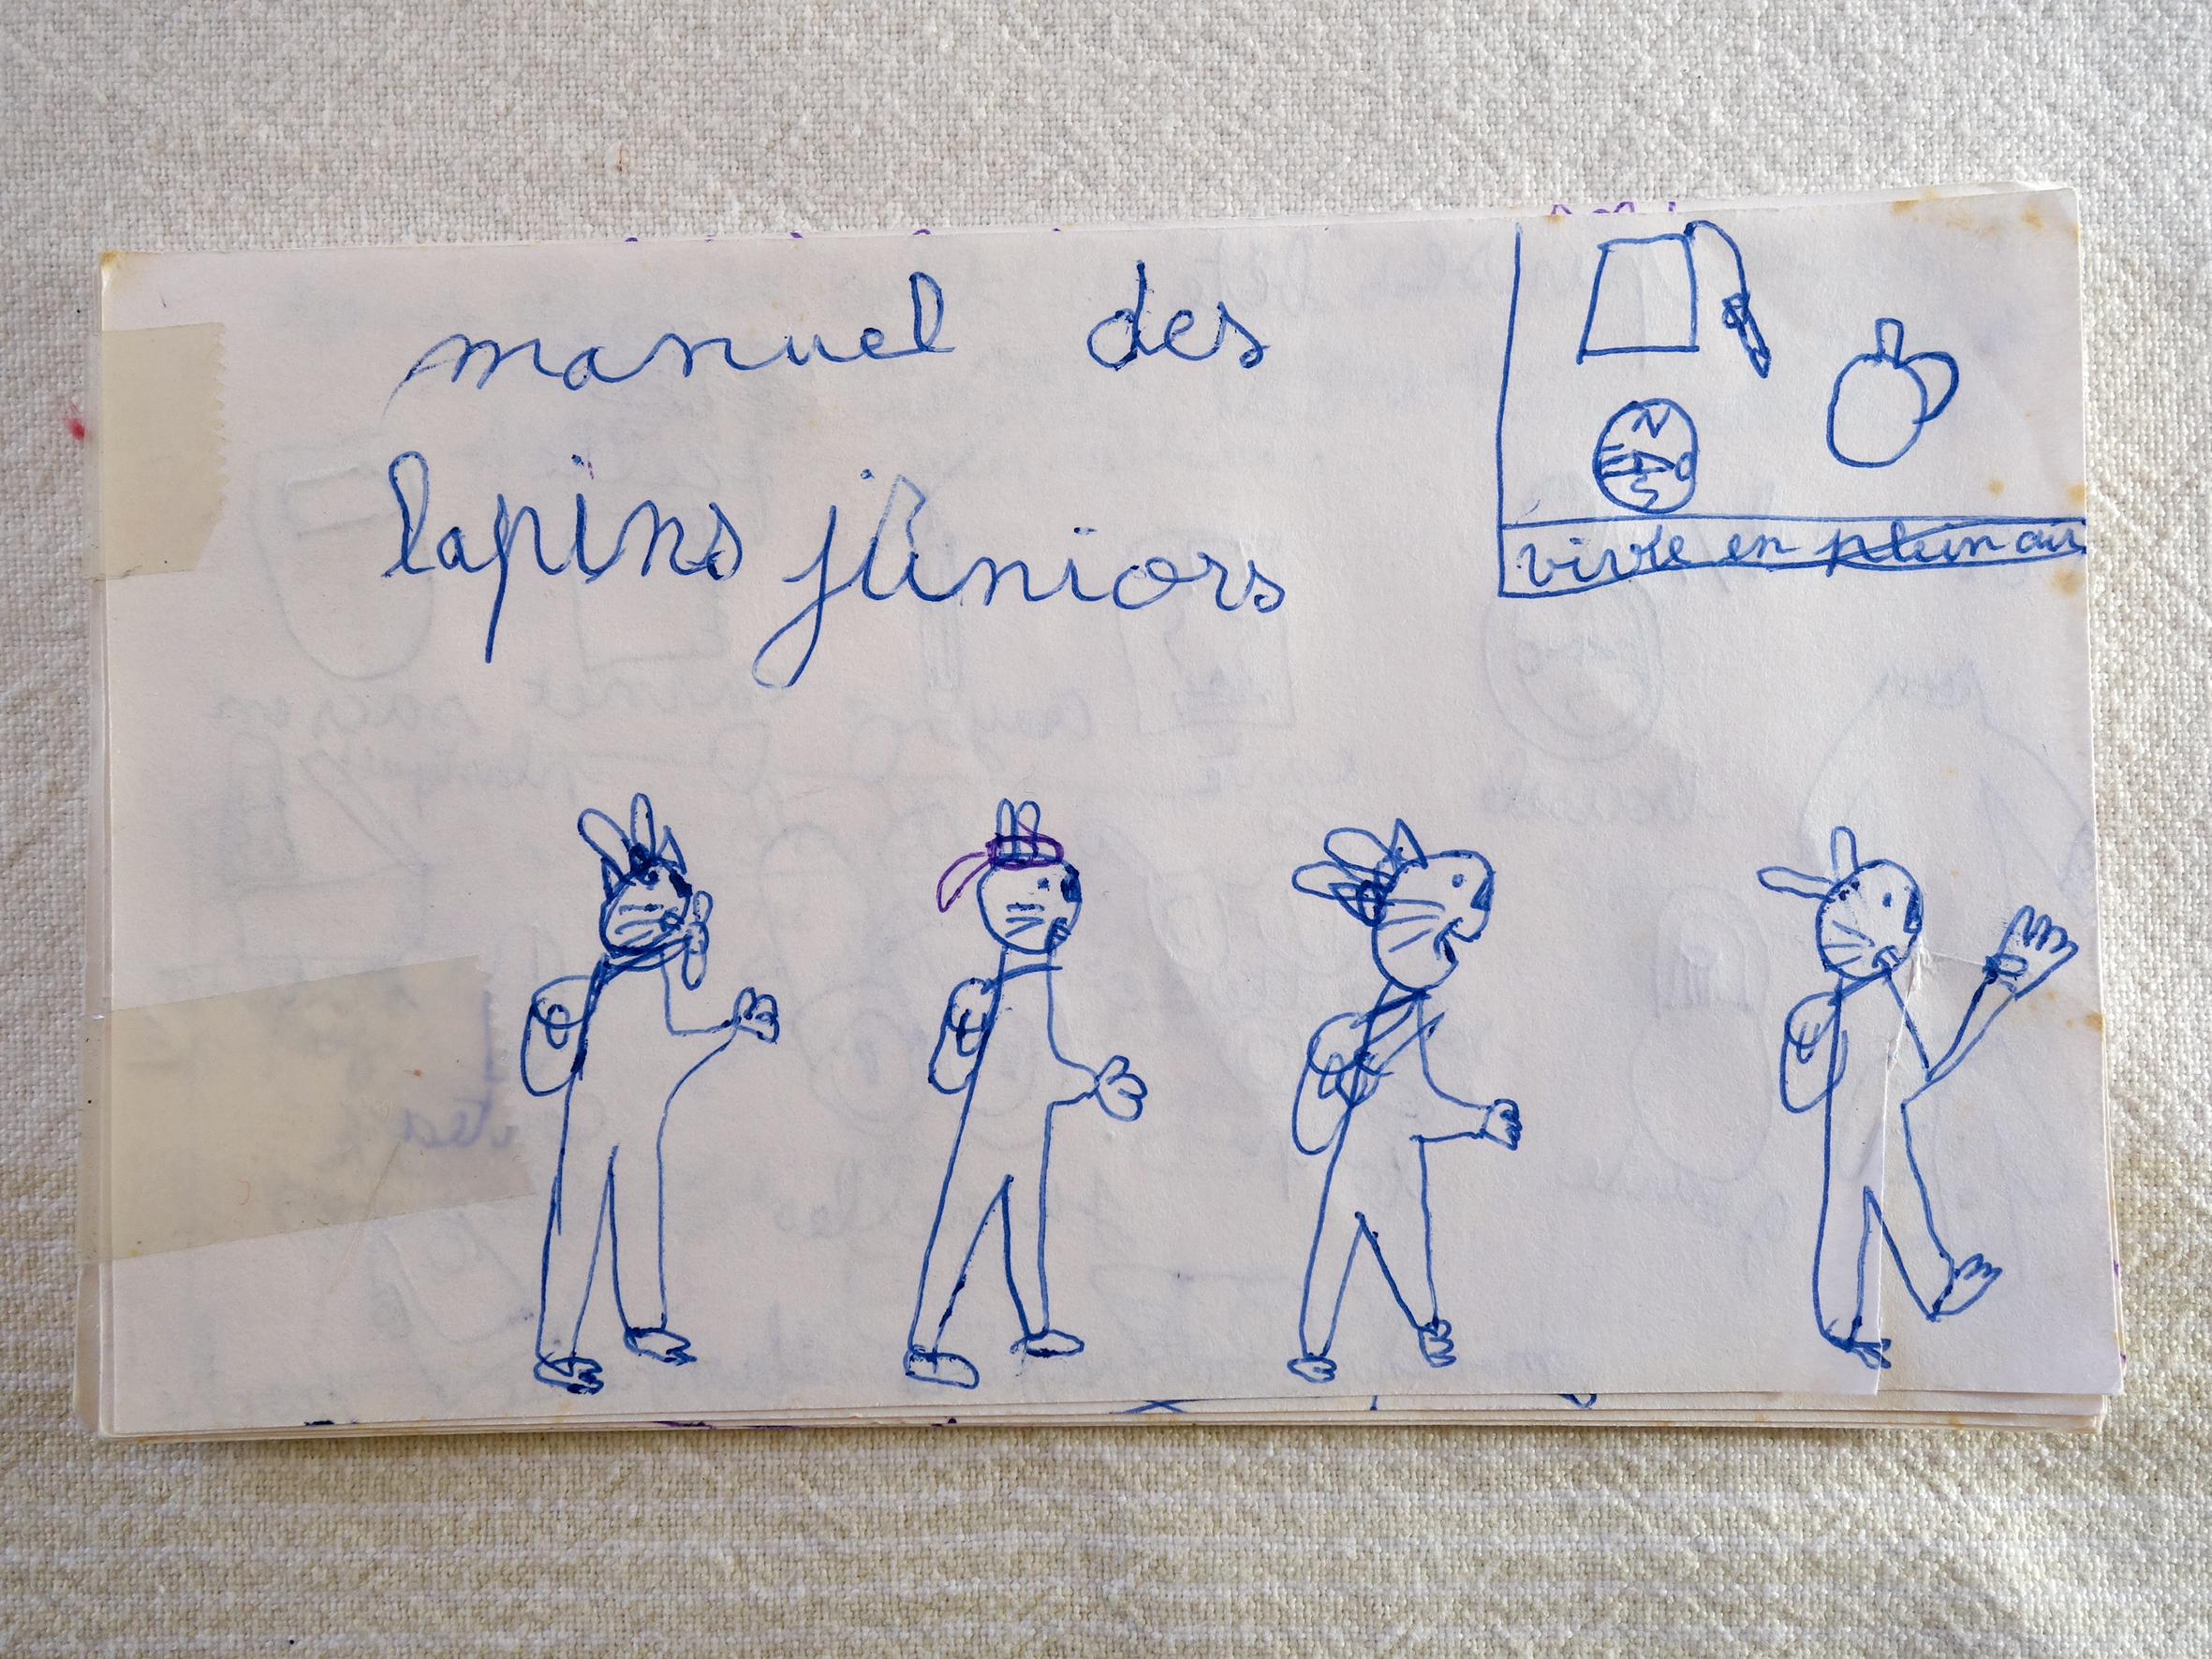 manuel des
lapins júniors
N
E O
S
vivre en plein air